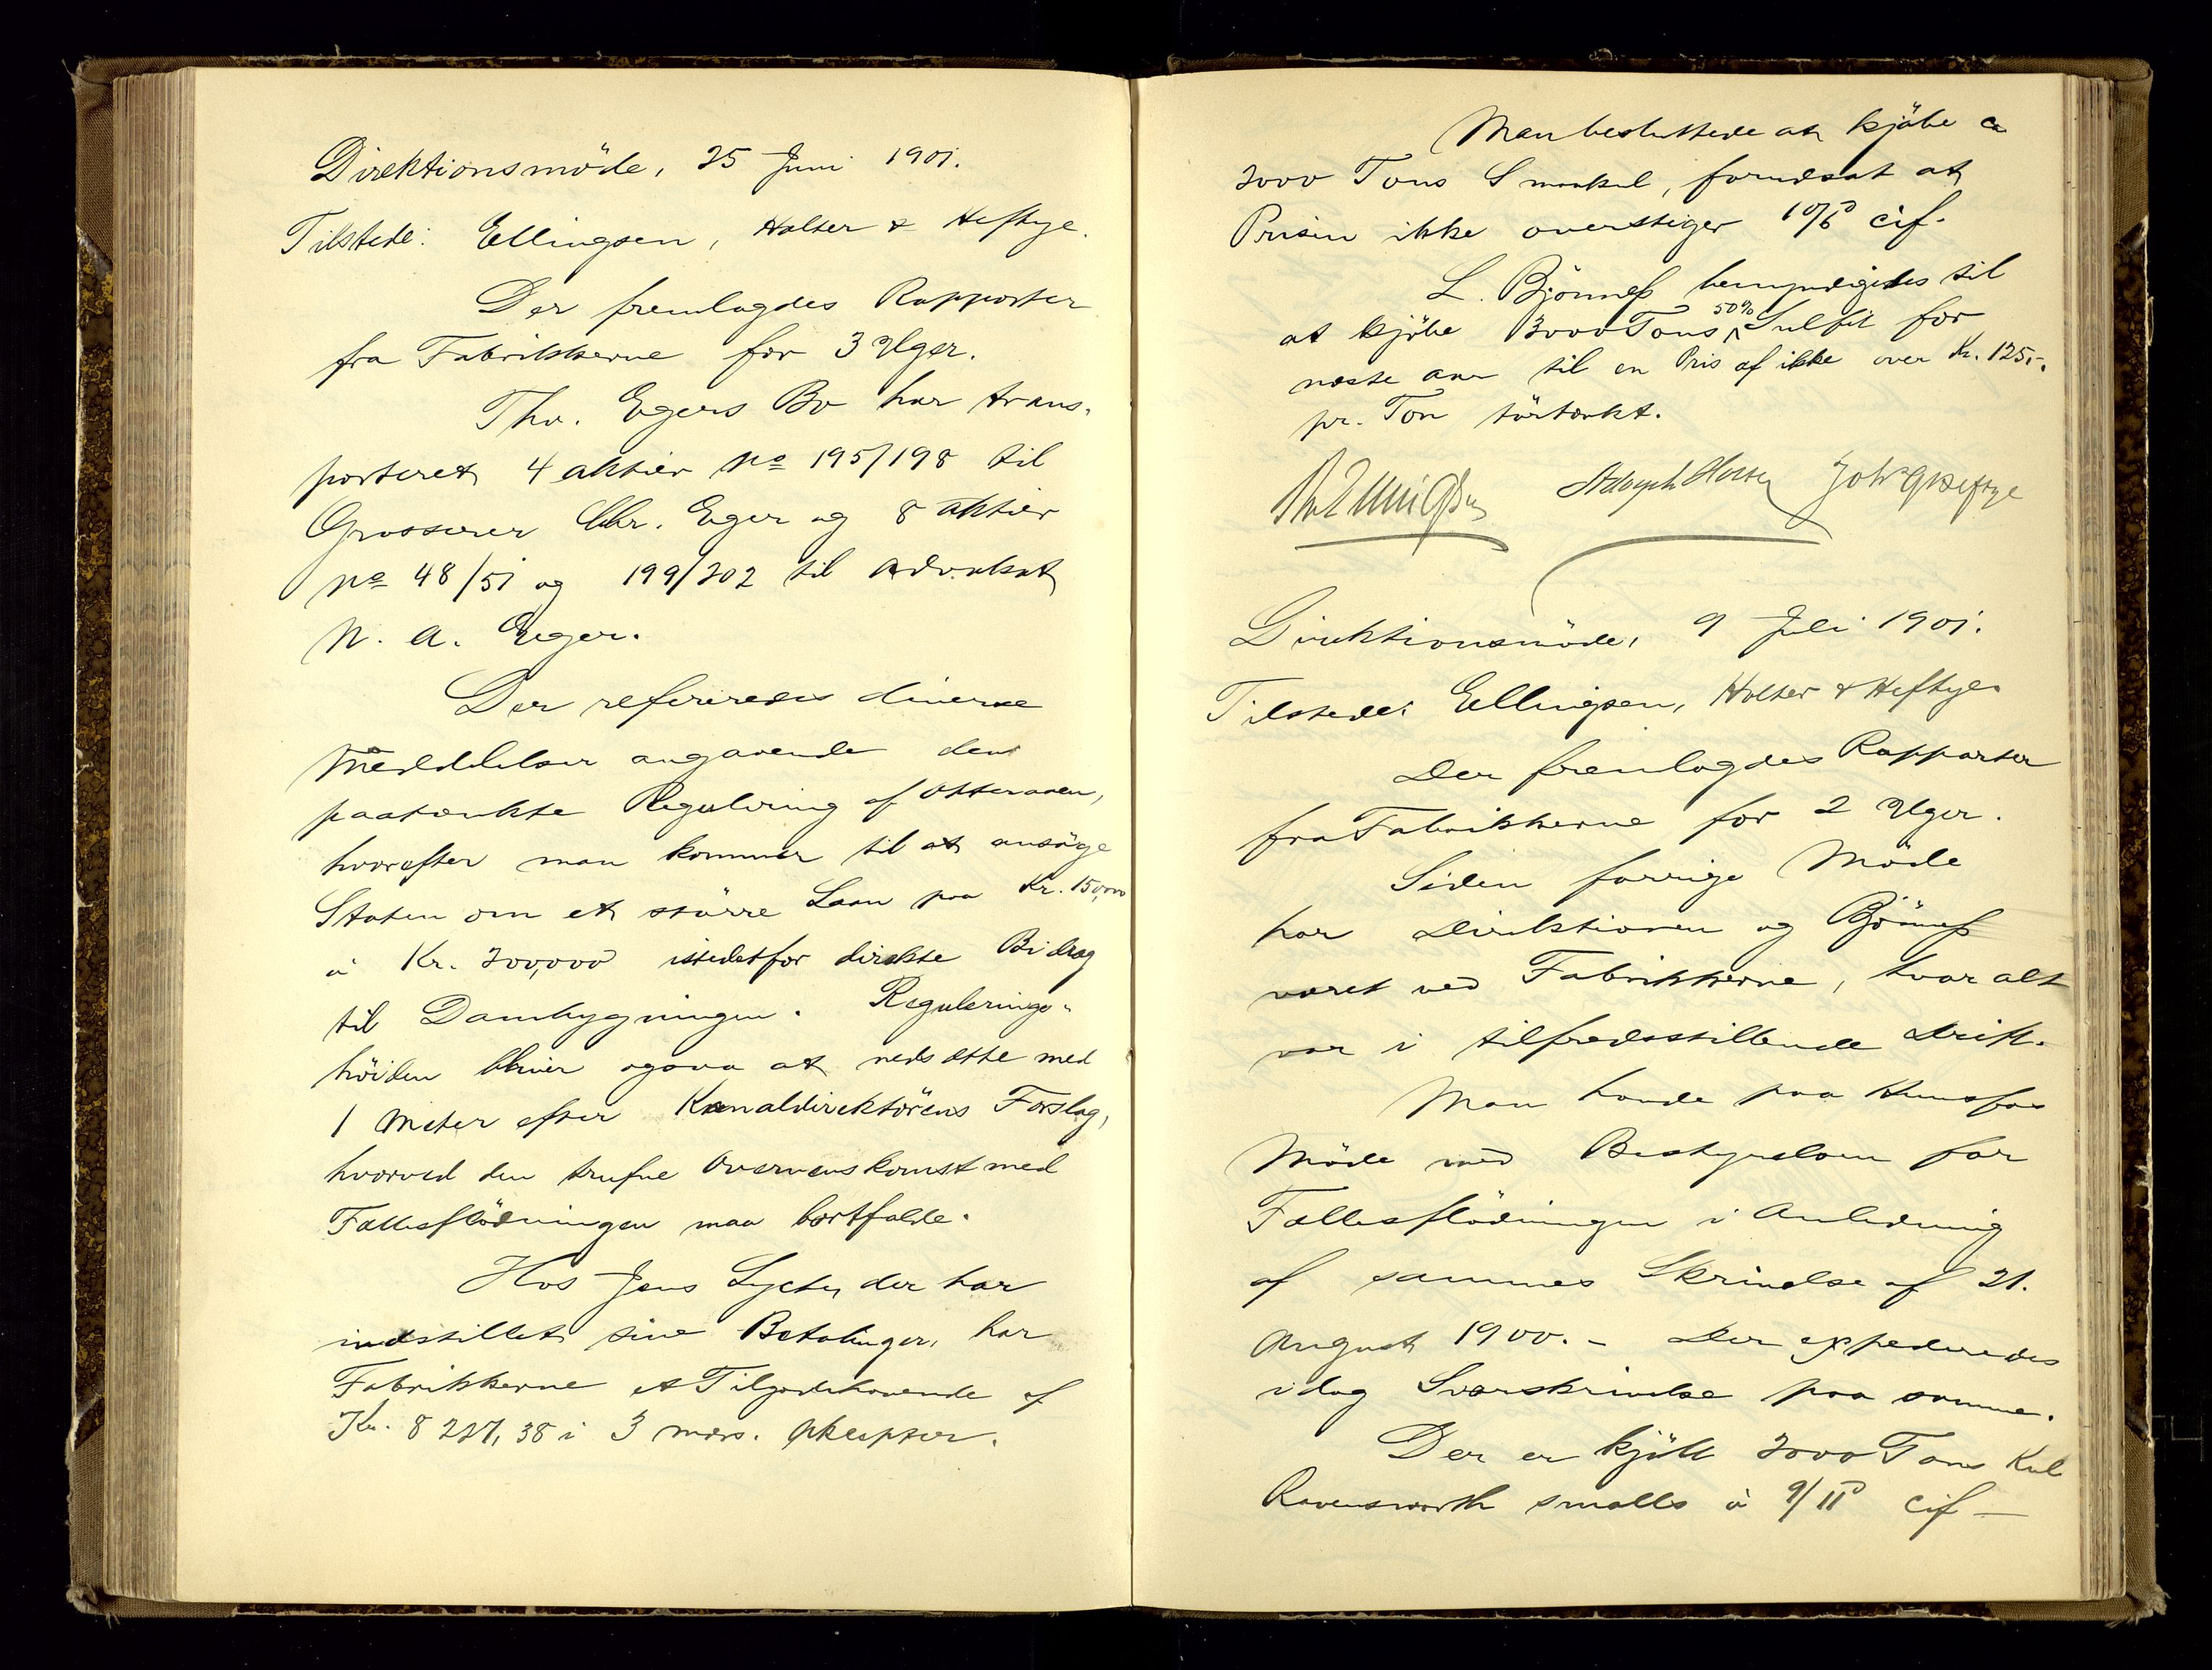 Direktionsmöde, 25 Juni 1901.
Tilstede: Ellingsen, Holter & Heftye.
Der fremlagdes Rapporter
fra Fabrikkerne for 3 Uger.
Thv. Egers Bo har trans-
porteret 4 aktier No 195/198 til
Grosserer Chr. Eger og 8 aktier
No 48/51 og 199/202 til advokat
N. A. Eger.
Der refereredes diverse
Meddelelser angaaende den
paatænkte Regulering af Otteraaen,
hvorefter man kommer til at ansöge
Staten om et större Laan paa Kr. 150,000
à Kr. 200,000 istedetfor direkte Bidrag
til Dambygningen. Regulerings-
höiden bliver ogsaa at nedsætte med
1 Meter efter Kanaldirektörens Forslag,
hvorved den trufne Overenskomst med
Fællesflödningen maa bortfalde.
Hos Jens Lycke, der har
indstillet sine Betalinger, har
Fabrikkerne et Tilgodehavende af
Kr. 8227,38 i 3 mdrs. Akcepter.
Man besluttede at kjöbe ca
2000 Tons Smaakul, forudsat at
Prisen ikke overstiger 10/6 cif.
L. Björness bemyndigedes til
50%
at kjöbe 3000 Tons Sulfit for
næste aar til en Pris af ikke over Kr. 125.-
pr. Ton törtænkt.
Direktionsmöde, 9 Juli 1901.
Tilstede: Ellingsen, Holter & Heftye.
Der fremlagdes Rapporter
fra Fabrikkerne for 2 Uger.
Siden forrige Möde
har Direktionen og Björness
været ved Fabrikkerne, hvor alt
var i tilfredsstillende Drift.
Man havde paa Hunsfos
Möde med Bestyrelsen for
Fællesflödningen i Anledning
af sammes Skrivelse af 21.
August 1900. - Der expederedes
idag Svarskrivelse paa samme.
Der er kjöbt 2000 Tons Kul
Ravensworth smalls à 9/11 cif -